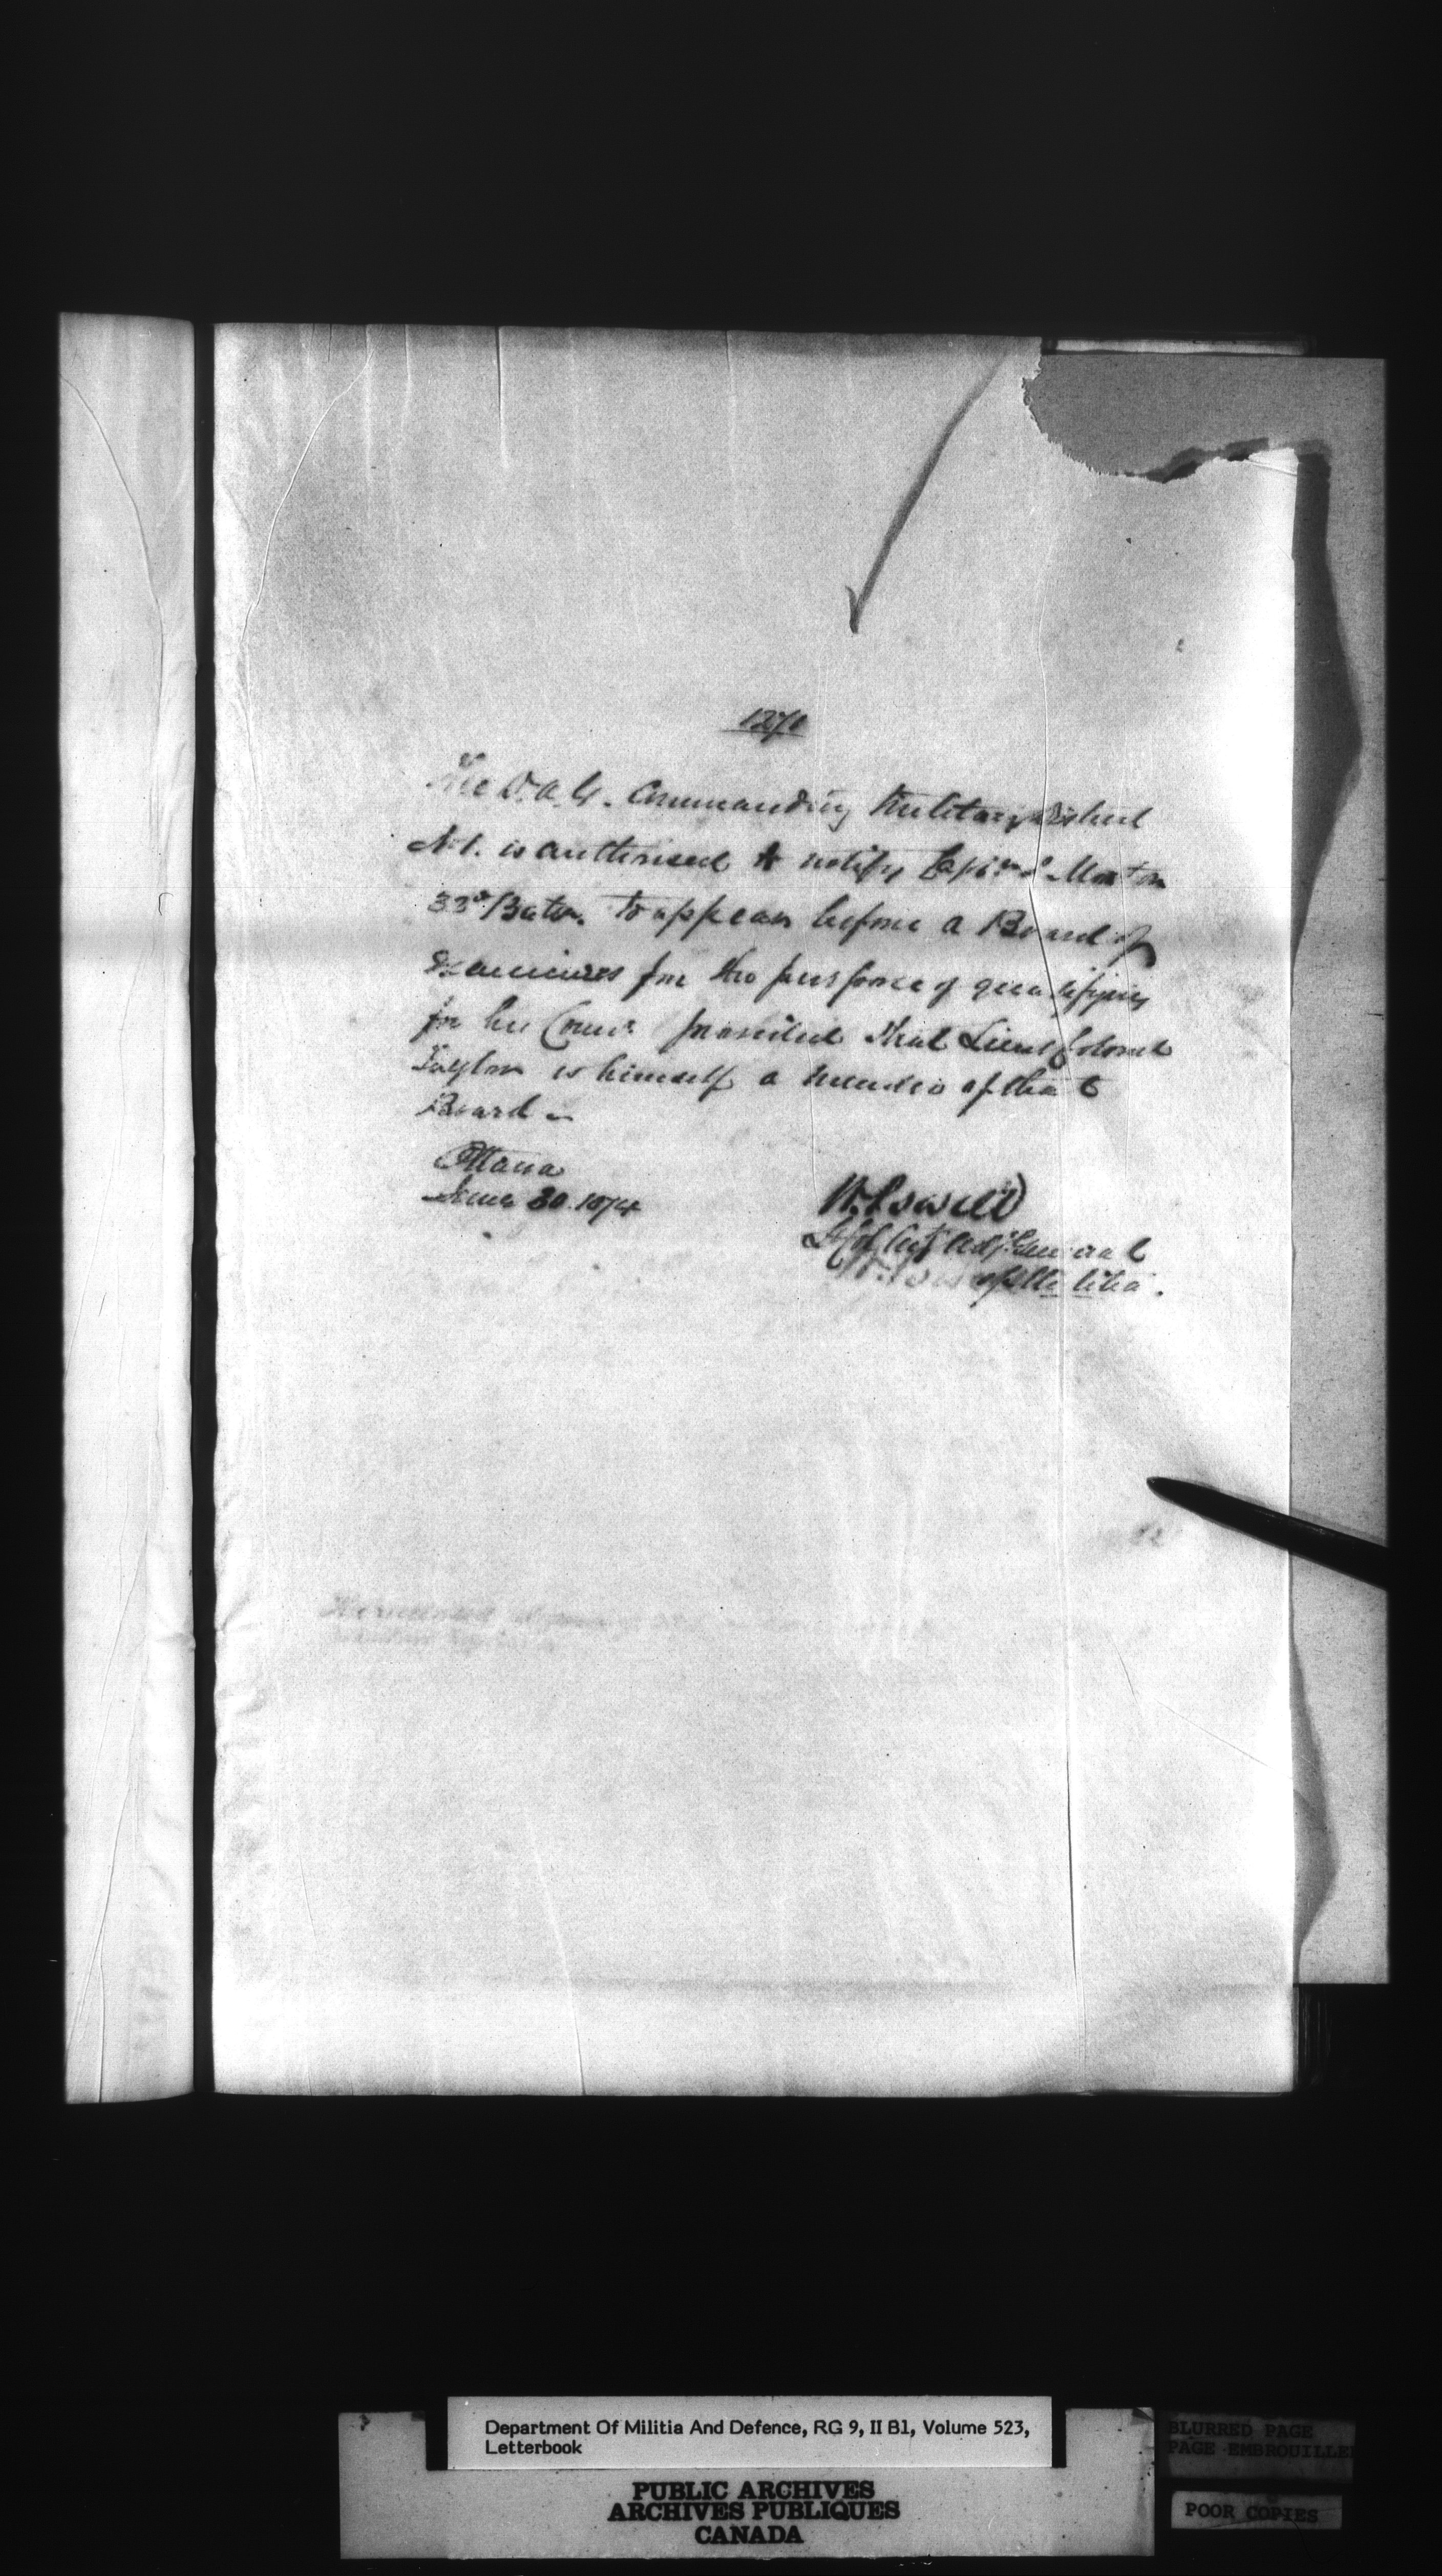 1271
The D.A.G. Commanding Military District
No 1. is authorised to notify Capt. Morton
33d Batn. to appear before a Board of
Examiners for the purpose of qualifying
for his Comn. provided that Lieut Colonel
Taylor is himself a member of that
Board
Ottawa
June 30 1874
W. Powell
Lt Col Actg Adjt General
of Militia.
Department Of Militia And Defence, RG 9, II B1, Volume 523,
Letterbook
PUBLIC ARCHIVES
ARCHIVES PUBLIQUES
CANADA
BLURRED PAGE
PAGE EMBROUILLEE
POOR COPIES